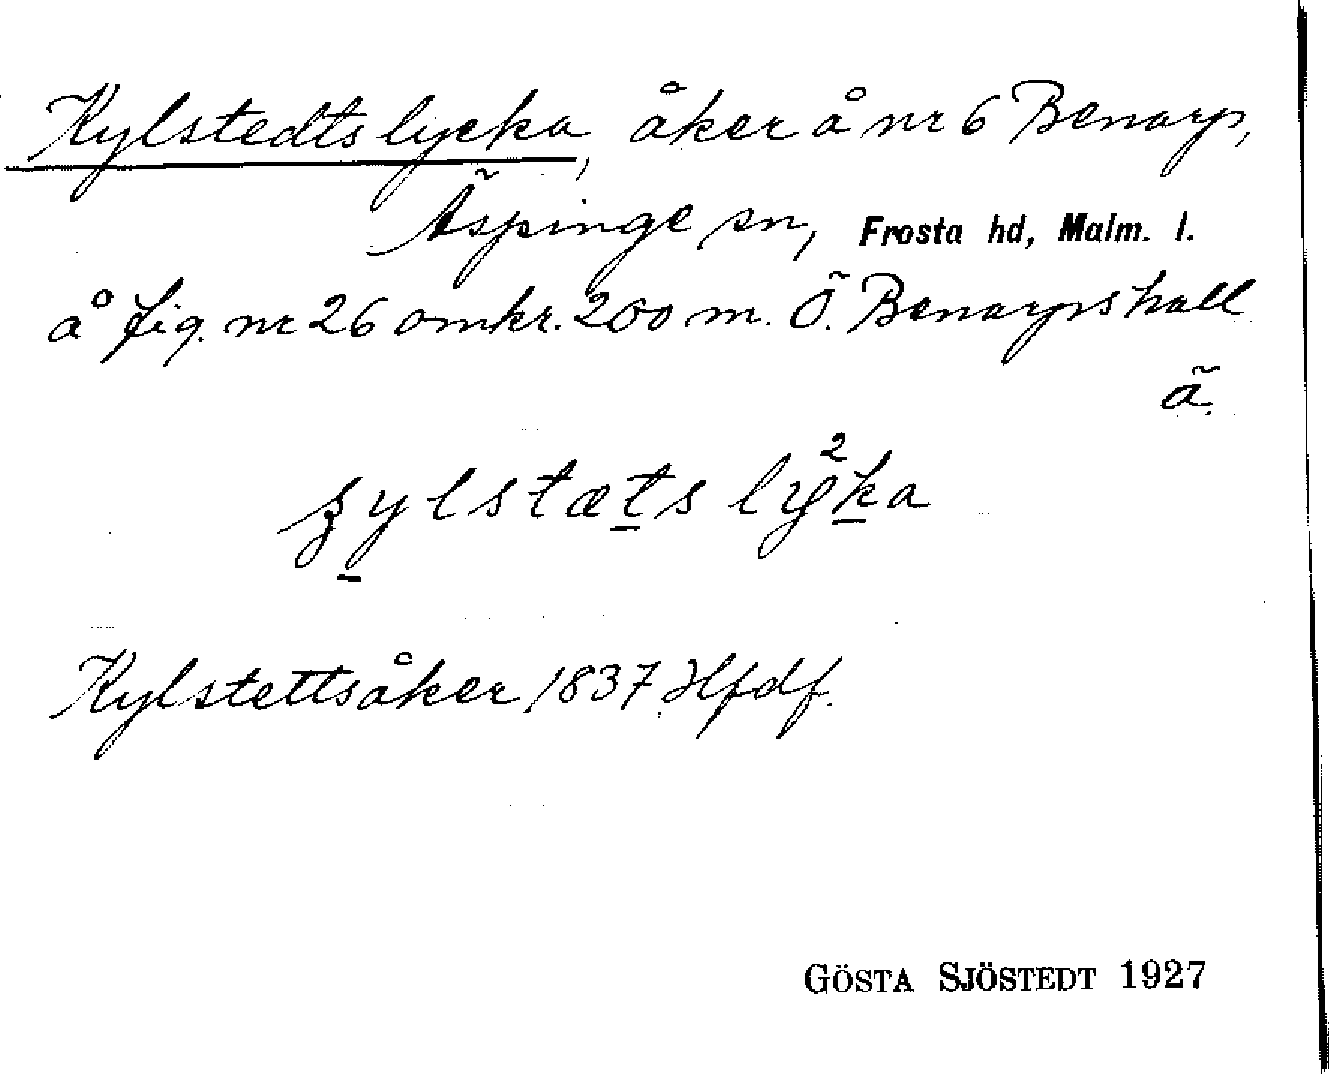 Kylstedtslycka, åker å nr 6 Benarp,
Äspinge sn, Frosta hd, Malm. l.
å fig. nr 26 omkr. 200 m. Ö. Benarps hall
ä.
ʒylstæts ly²ka
Kylstettsåker 1837 Hfdf.
GÖSTA SJÖSTEDT 1927